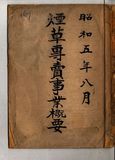 昭和五年八月
煙草専賣事業概要